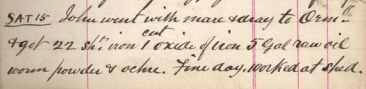 SAT 15 John went with mare & dray to Orm
& got 22 sht. iron 1 cwt oxide of iron 5 Gal raw oil
worm powder & ochre. Fine day. worked at shed.